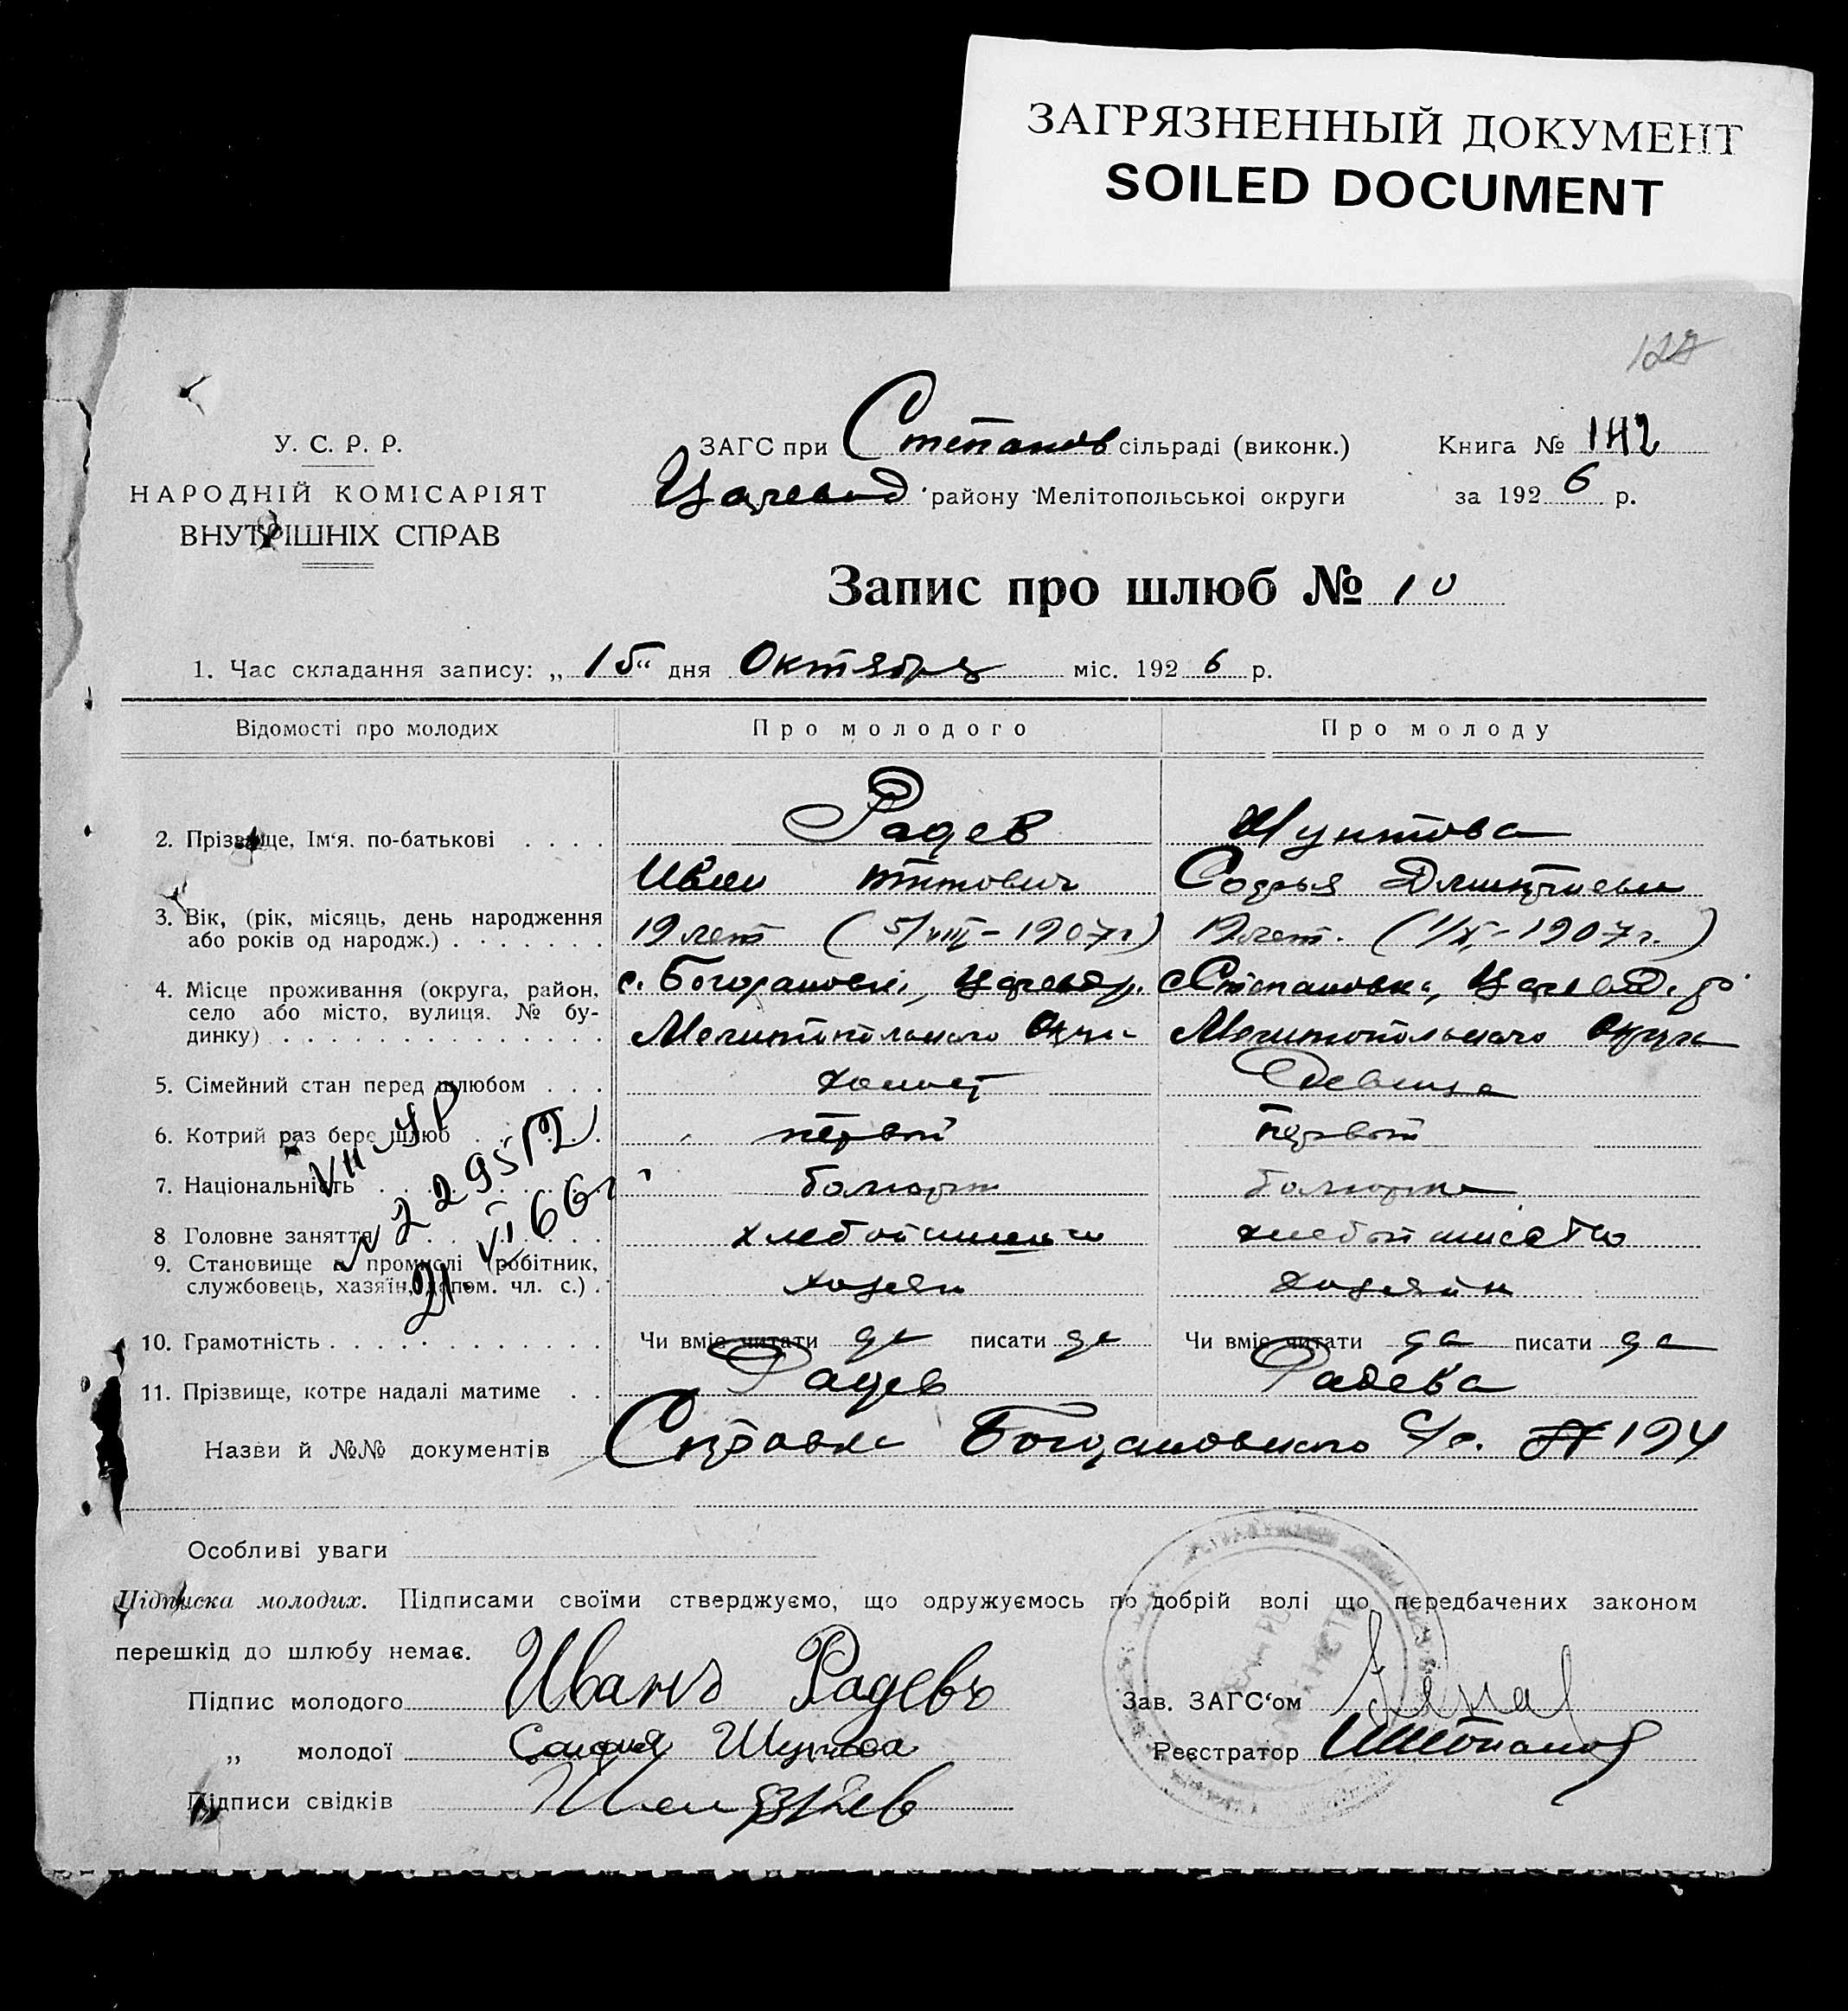 ЗАГРЯЗНЕННЫЙ ДОКУМЕНТ
SOILED DOCUMENT
127
У. С. Р. Р.
НАРОДНІЙ КОМІСАРІЯТ
ВНУТРІШНІХ СПРАВ
ЗАГС при Степанов сільраді (виконк.)
Царевод району Мелітопольської округи
Книга № 142
за 1926 р.
Запис про шлюб № 10
1. Час складання запису: „15“ дня Октября міс. 1926 р.
Відомості про молодих Про молодого Про молоду
2. Прізвище, Ім‘я, по-батькові . . . . Радев Шунтова
Иван Титович Софья Дмитриевн
3. Вік, (рік, місяць, день народження 19 лет (5/VIII-1907г) 19 лет. (1/X-1907г.)
або років од народж.) . . . . . . .
4. Місце проживання (округа, район, с. Богдановки, Царевод р. с Степановка, Царевод. р
село або місто, вулиця, № бу-
динку) . . . . . . . . . . . . . . Мелитопольского Окру Мелитопольского Округа
5. Сімейний стан перед шлюбом . . . холост Девица
6. Котрий раз бере шлюб . . . . первый первый
7. Національність . . . . болгарин болгарка
8. Головне заняття . . . . хлебопашество хлебопашество
9. Становище в промислі (робітник,
службовець, хазяїн, допом. чл. с.) . хозяин хозяин
VII ЧР
№ 229512
21. VI 66г
10. Грамотність . . . . . . . . . . . . Чи вміє читати да писати да Чи вміє читати да писати да
11. Прізвище, котре надалі матиме . . Радев Радева
Назви й №№ документів Справка Богдановского с/с. № 194
Особливі уваги
Підписка молодих. Підписами своїми стверджуємо, що одружуємось по добрій волі що передбачених законом
перешкід до шлюбу немає.
Підпис молодого Иванъ Радевъ Зав. ЗАГС‘ом
„ молодої София Шунтова Реєстратор Степанов
Підписи свідків